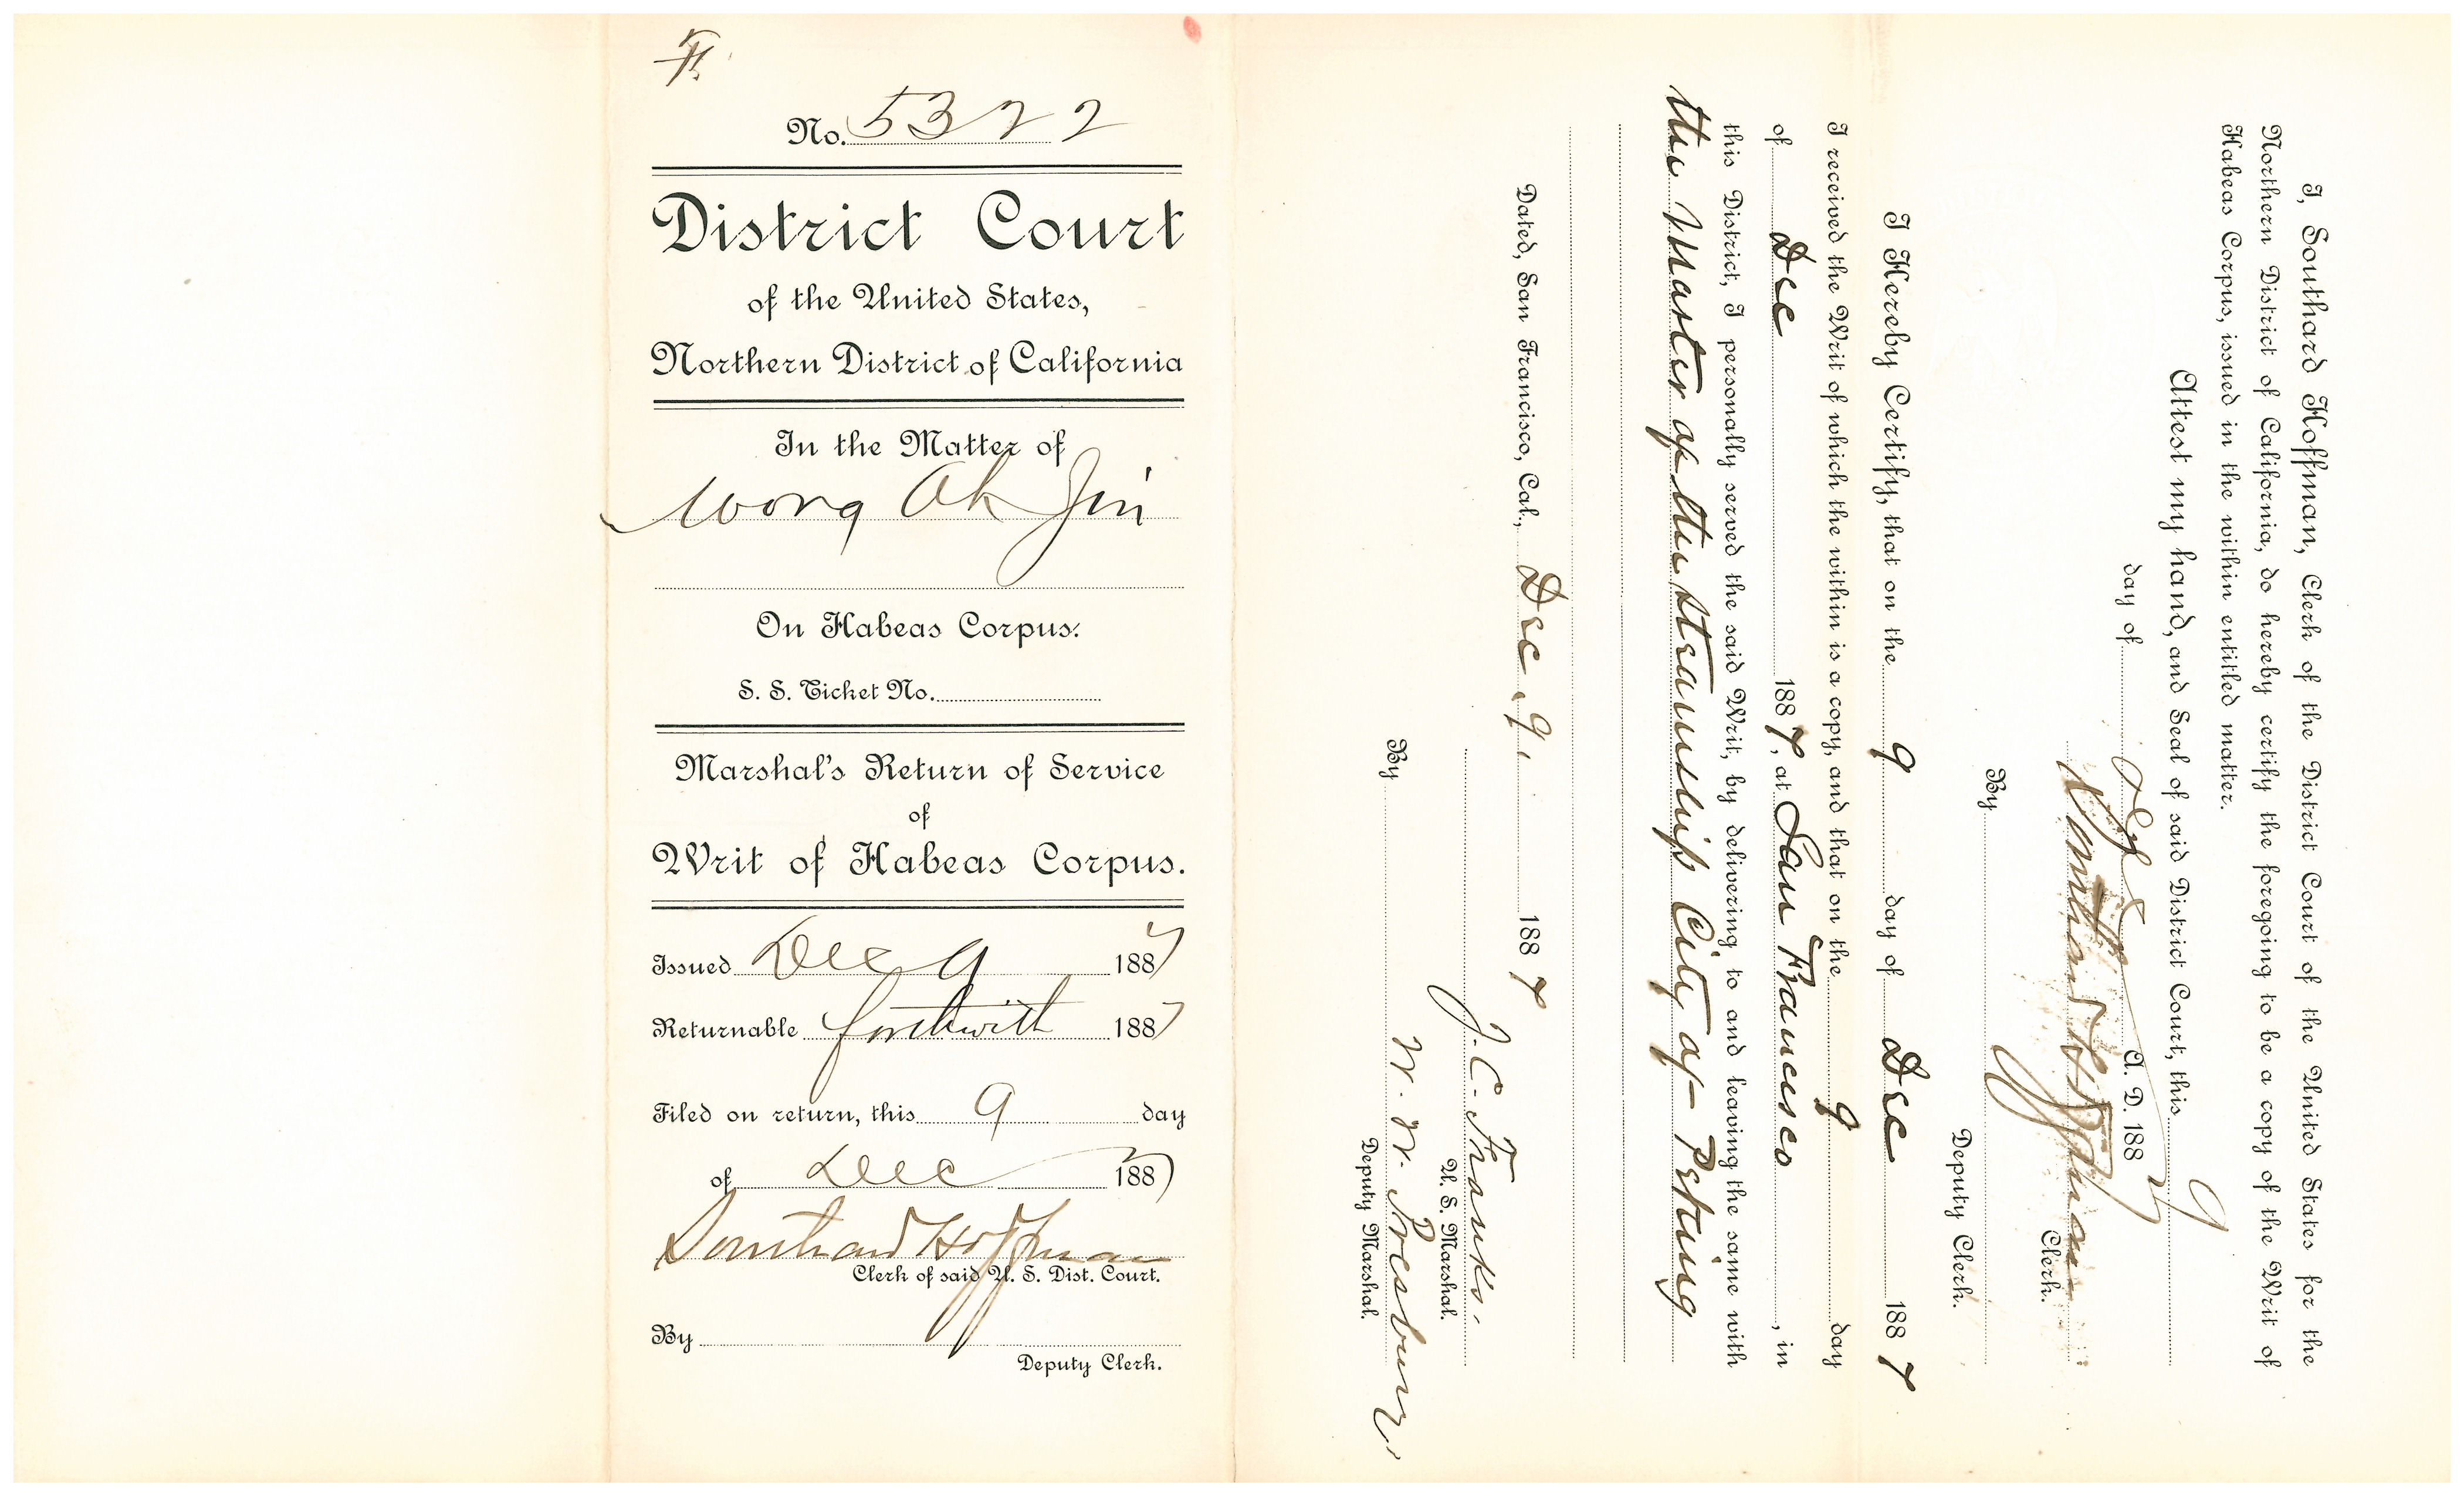 H.
No. 5322
District Court
of the United States,
Northern District of California
In the Matter of
Wong Ah Jin
On Habeas Corpus.
S. S. Ticket No.
Marshal's Return of Service
of
Writ of Habeas Corpus.
Issued Dec 9 1887
Returnable forthwith 1887
Filed on return, this 9 day
of Dec 1887
Southard Hoffman
Clerk of said U. S. Dist. Court.
By
Deputy Clerk.
I, Southard Hoffman, Clerk of the District Court of the United States for the
Northern District of California, do hereby certify the foregoing to be a copy of the Writ of
Habeas Corpus, issued in the within entitled matter.
Attest my hand, and Seal of said District Court, this 9
day of Dec A. D. 1887
Southard Hoffman
Clerk.
By
Deputy Clerk.
I Hereby Certify, that on the 9 day of Dec 1887
I received the Writ of which the within is a copy, and that on the 9 day
of Dec 1887, at San Francisco, in
this District, I personally served the said Writ, by delivering to and leaving the same with
the Master of the steamship City of Peking
Dated, San Francisco, Cal., Dec. 9, 1887
J. C. Franks.
U. S. Marshal.
By N. N. Presbury,
Deputy Marshal.